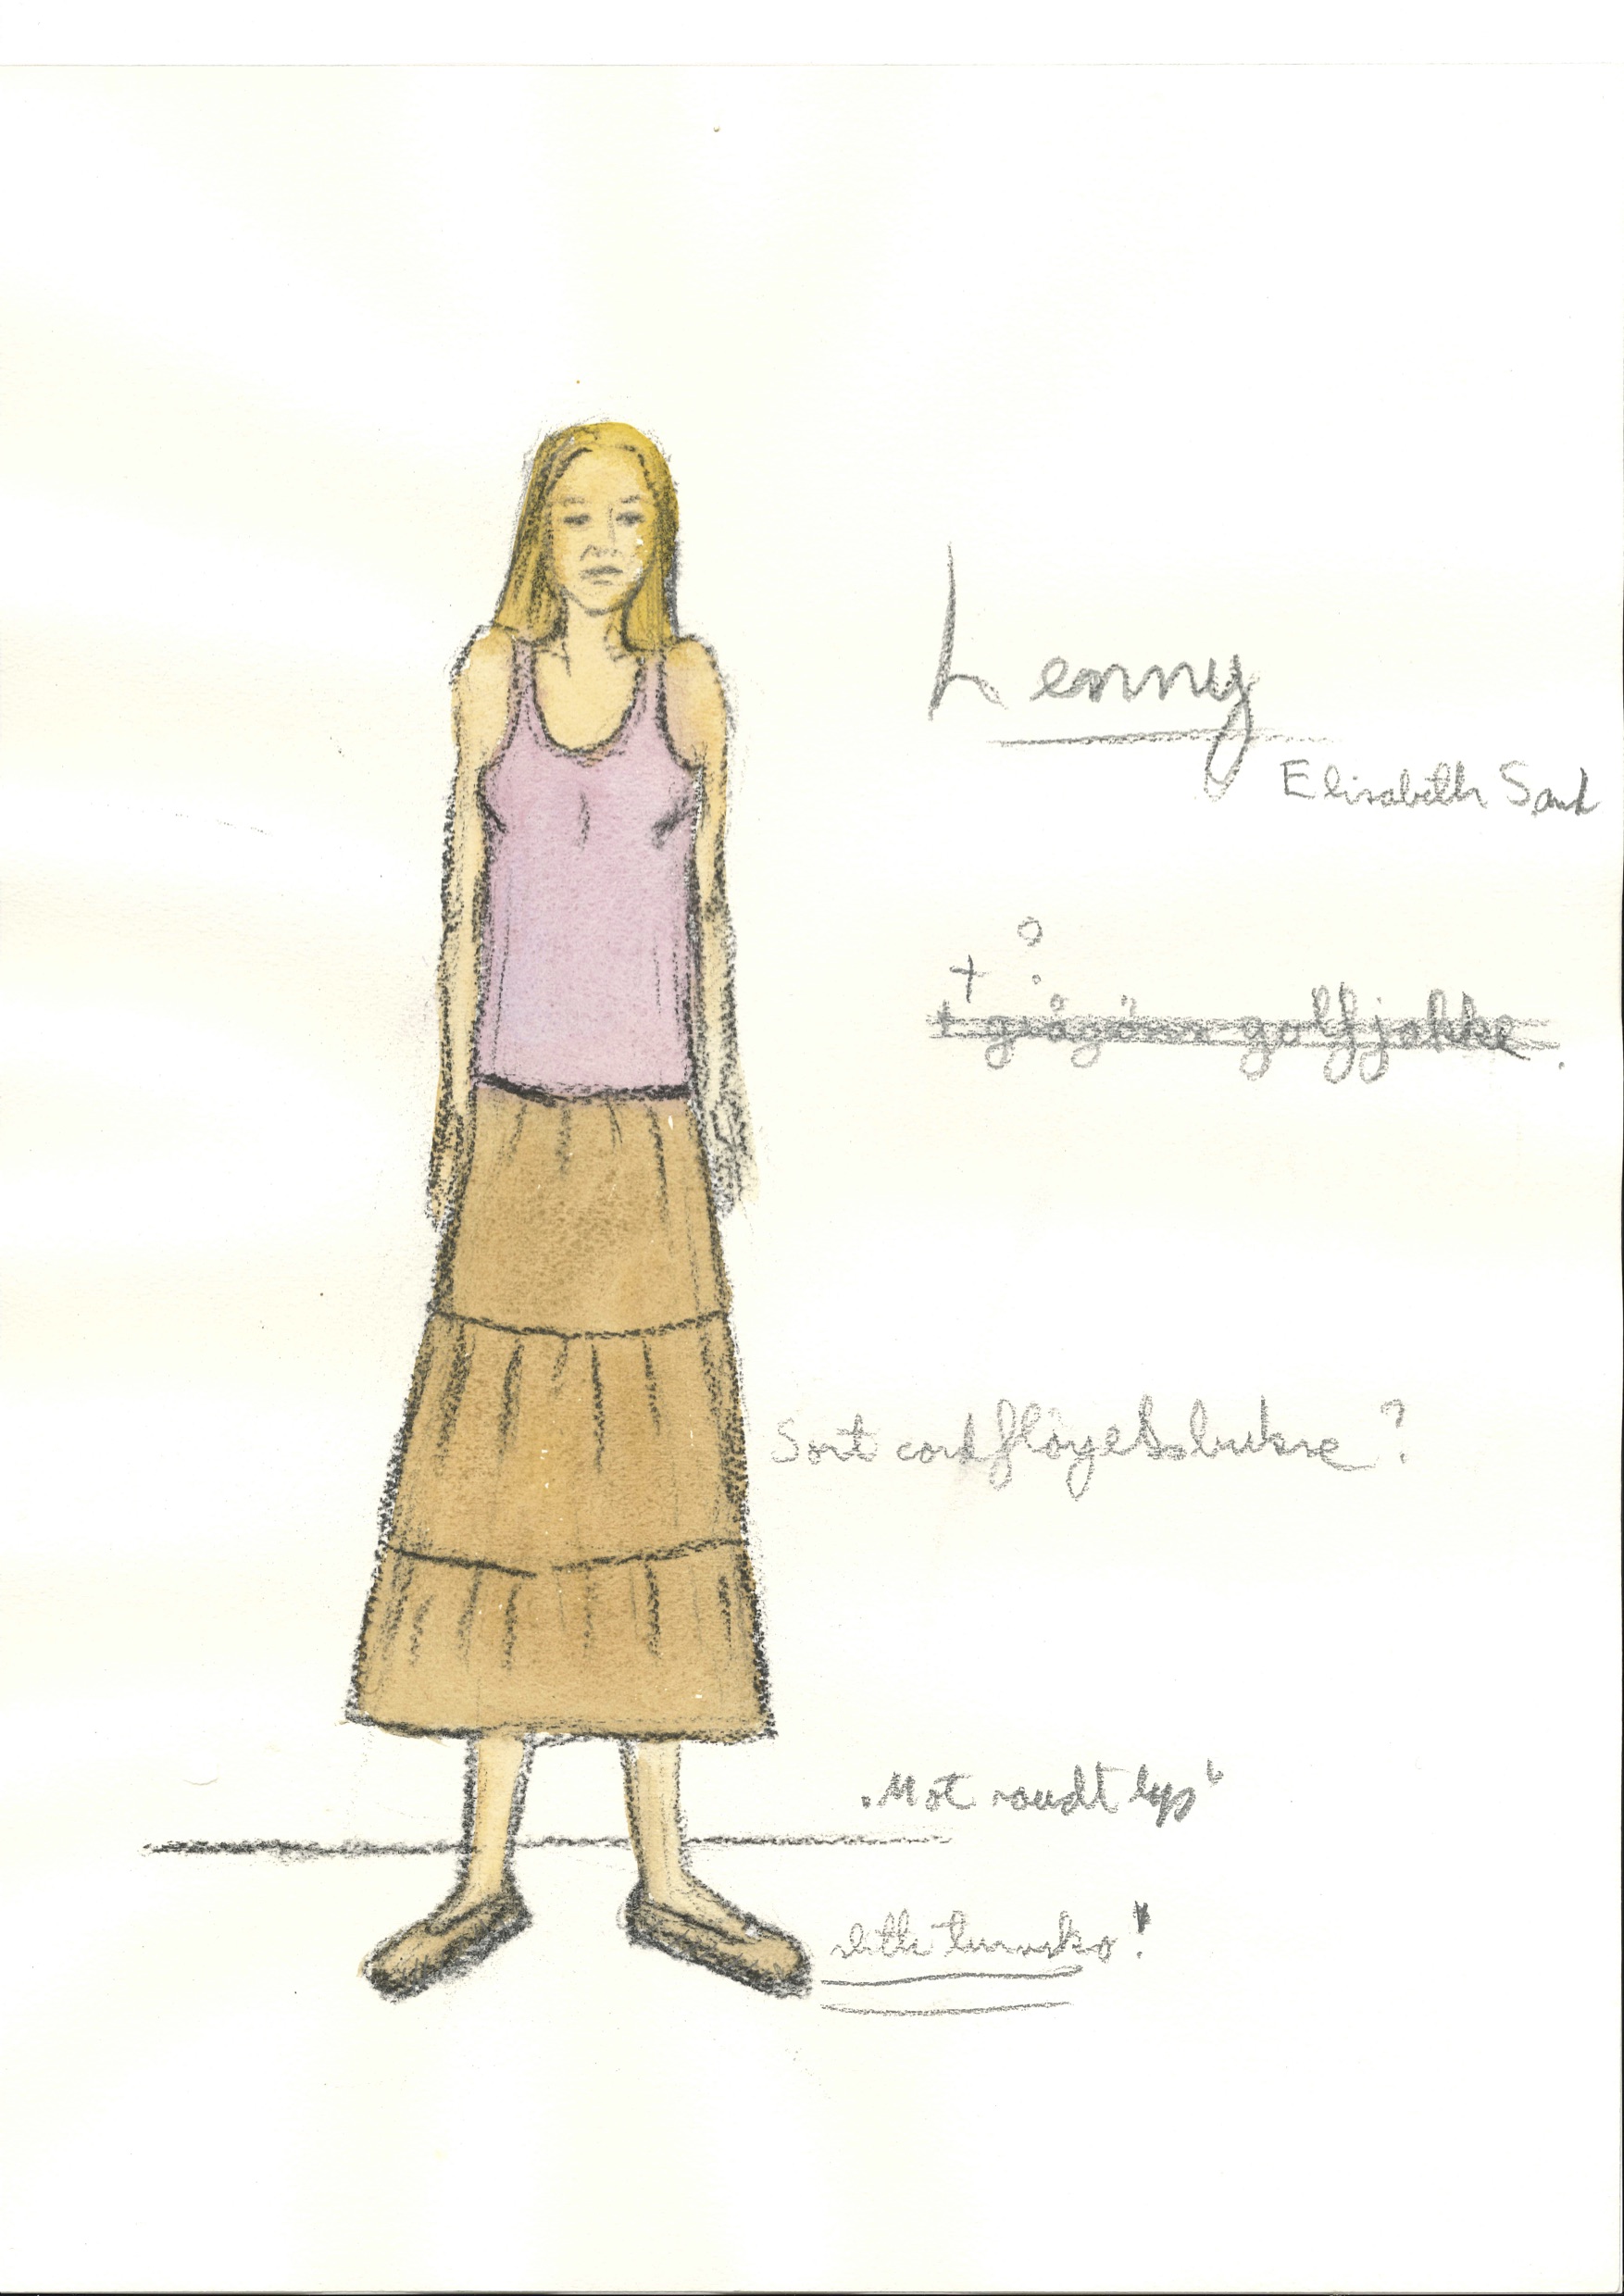 Lenny
Elisabeth Sand
+
+ grågrønn golfjakke.
Sort cordfløyelsbukse?
"Mot raudt lys"
slitte turnsko!